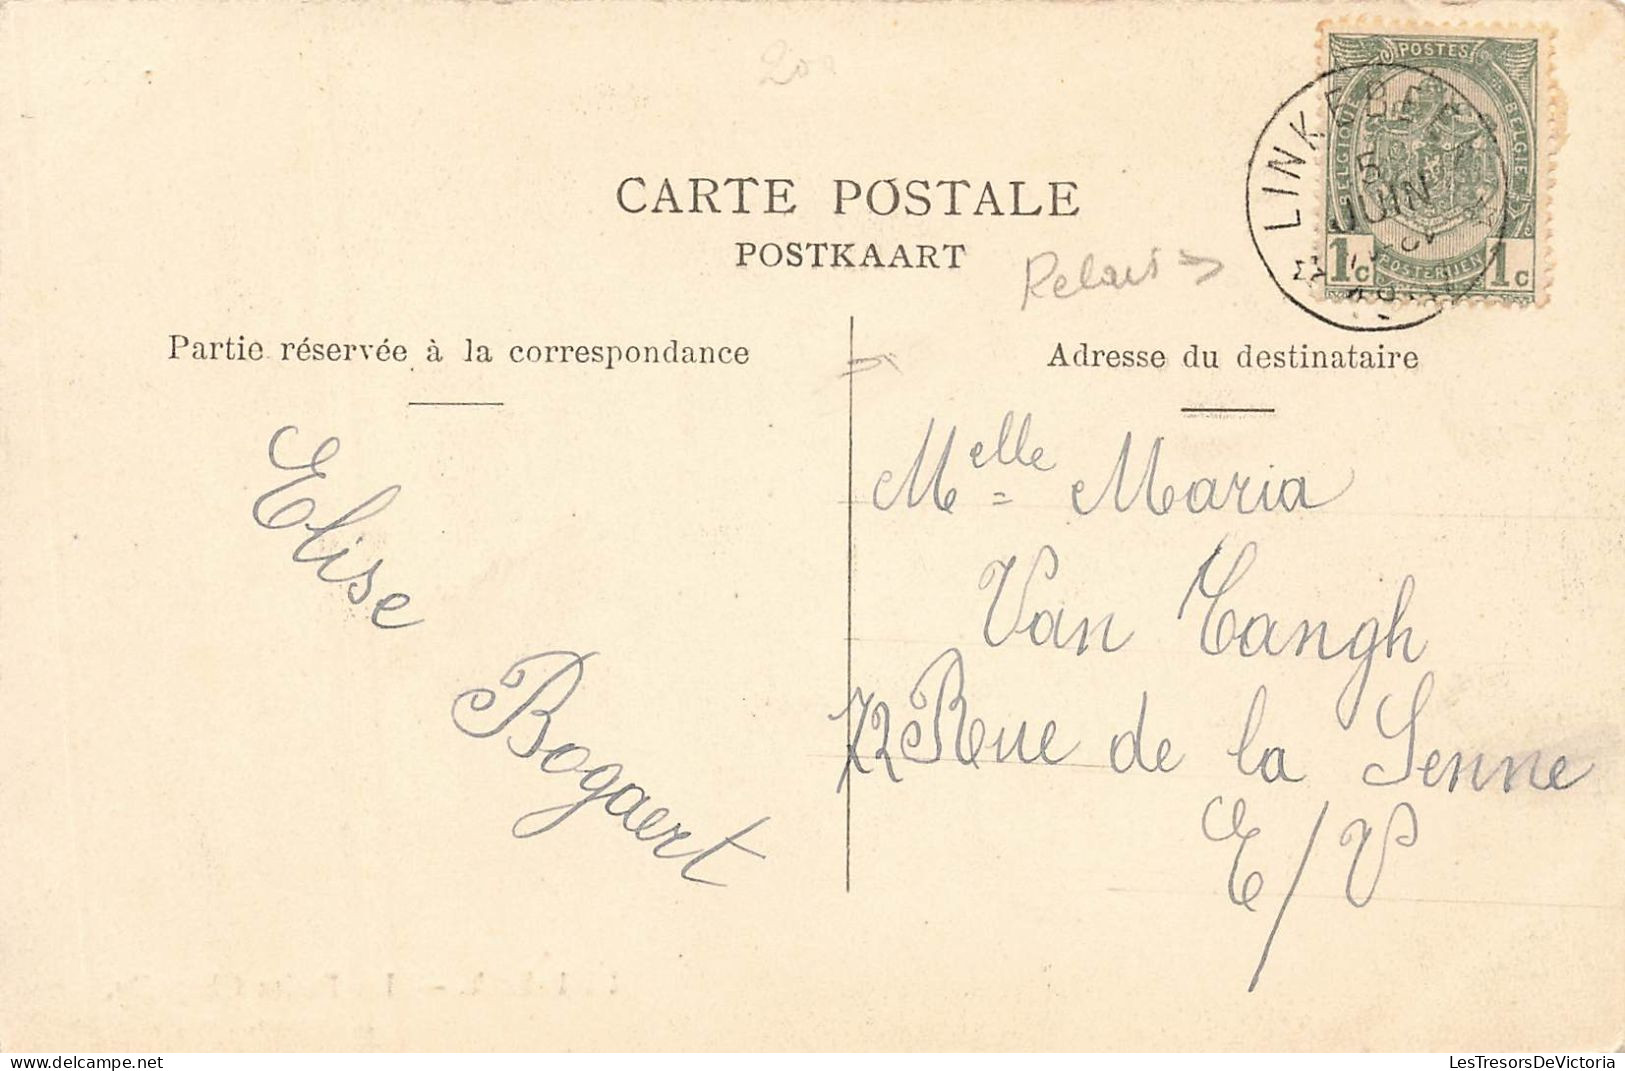 POSTES
BELGIQUE
BELGIE
1c
POSTERIJEN
1c
LINKEBEEK
5
JUIN
CARTE POSTALE
POSTKAART
Relais →
Partie réservée à la correspondance
Adresse du destinataire
Elise
Bogaert
Melle Maria
Van Tangh
72 Rue de la Senne
E/V
LesTresorsDeVictoria